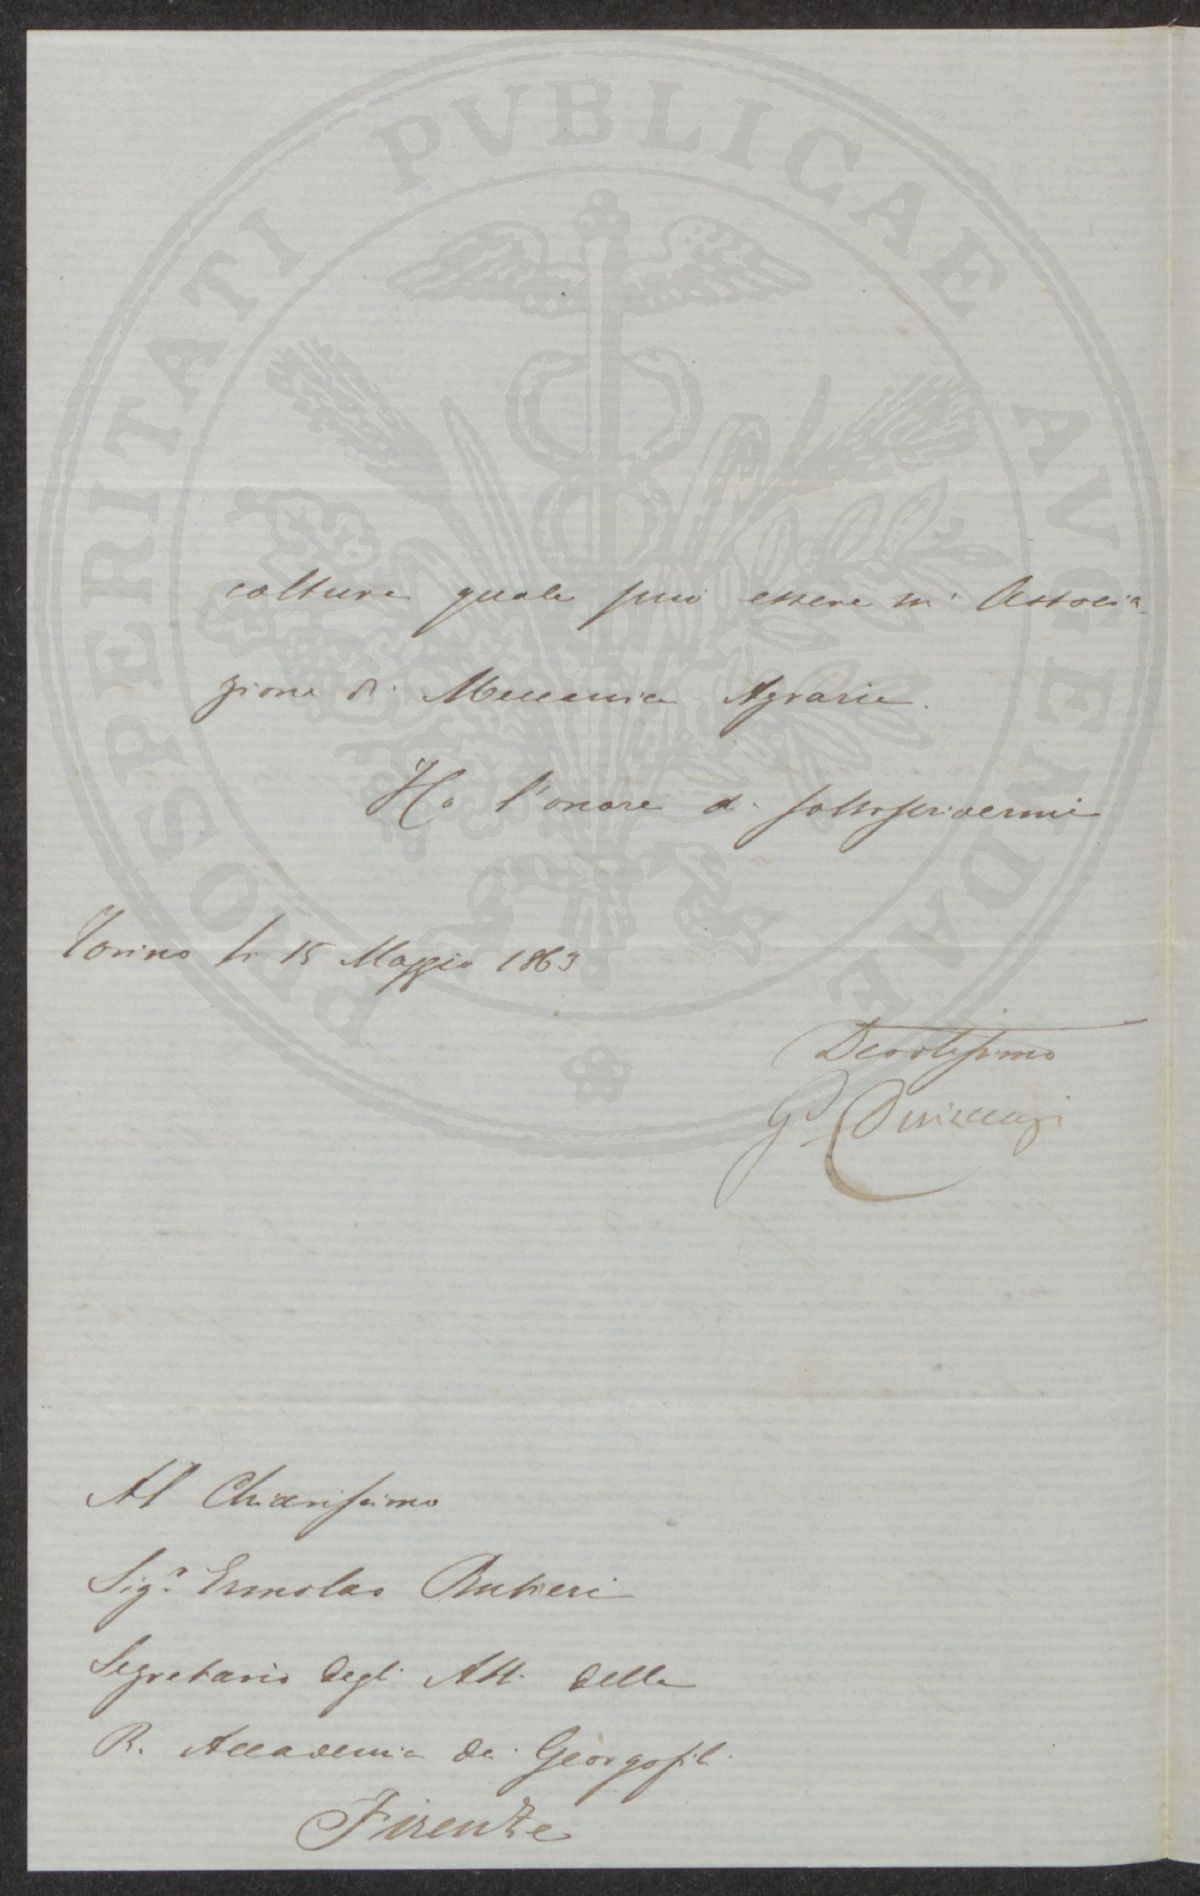 PROSPERITATI PVBLICAE AVGENDAE
coltura quale può essere un' Associa-
zione di Meccanica Agraria.
Ho l'onore di sottoscrivermi
Torino li 15 Maggio 1863
Devotissimo
G. Devincenzi
Al Chiarissimo
Sigr. Ermolao Rubieri
Segretario degli Atti della
R. Accademia dei Georgofili
Firenze